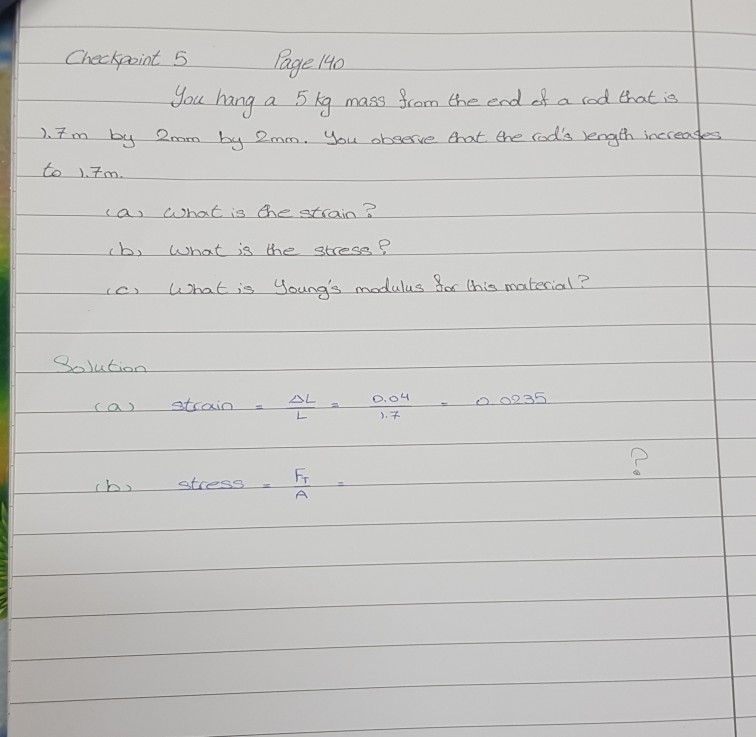 Checkpoint 5 Page 140
You hang a 5 kg mass from the end of a rod that is
1.7m by 2mm by 2mm. You observe that the rod's length increases
to 1.7m.
(a) What is the strain?
(b) What is the stress?
(c) What is Young's modulus for this material?
Solution
(a) strain = ΔL/L = 0.04/1.7 = 0.0235
(b) stress = F_T/A = ?